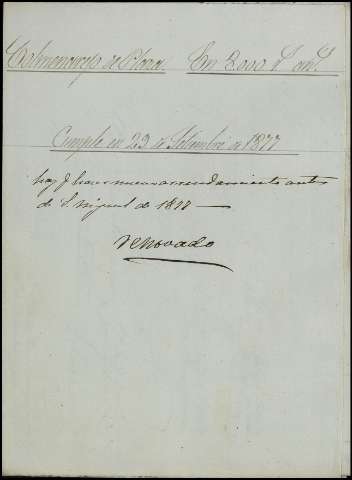 Colmenarejo de Plaza. En 2.000 r.s an.s
Cumple en 23 de Setiembre de 1877
hay q. hacer nuevo arrendamiento antes
de S. Miguel de 1877 —
renovado